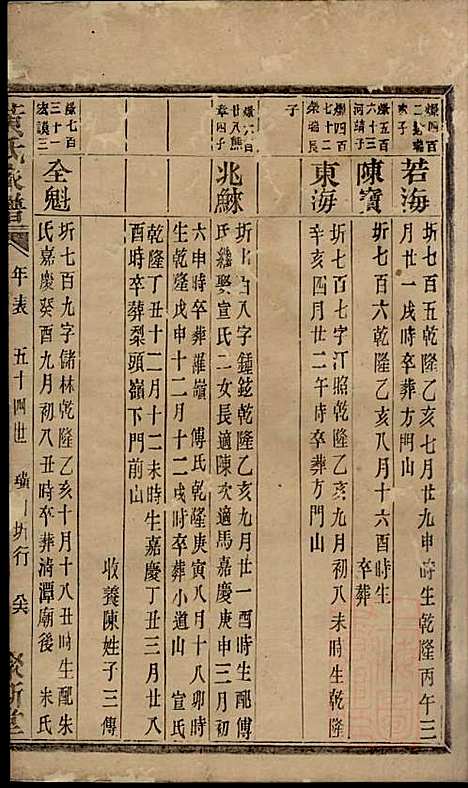 燦四百
若海
圻七百五乾隆乙亥七月廿九申時生乾隆丙午三
月廿一戌時卒葬方門山
燦五百
六十三
河靖子
陳寶
圻七百六乾隆乙亥八月十六酉時生
卒葬
燦四百
七十二
榮瑞長
子
東海
圻七百七字汀照乾隆乙亥九月初八未時生乾隆
辛亥四月廿二午時卒葬方門山
廿八熊
章四子
兆蘇
圻七百八字鍾鉉乾隆乙亥九月廿一酉時生配傅
氏繼娶宣氏二女長適陳次適馬嘉慶庚申三月初
六申時卒葬羅嶺 傅氏乾隆庚寅八月十八卯時
生乾隆戊申十二月十二戌時卒葬小道山 宣氏
乾隆丁丑十二月十二未時生嘉慶丁丑三月十一
酉時卒葬梨頭嶺下門前山
收養陳姓子三傳
燦七百
三十一
宏謨三
全魁
圻七百九字儲林乾隆乙亥十月十八丑時生配朱
氏嘉慶癸酉九月初八丑時卒葬淸潭廟後 朱氏
黃氏家譜
年表 五十四世 璜一圻行